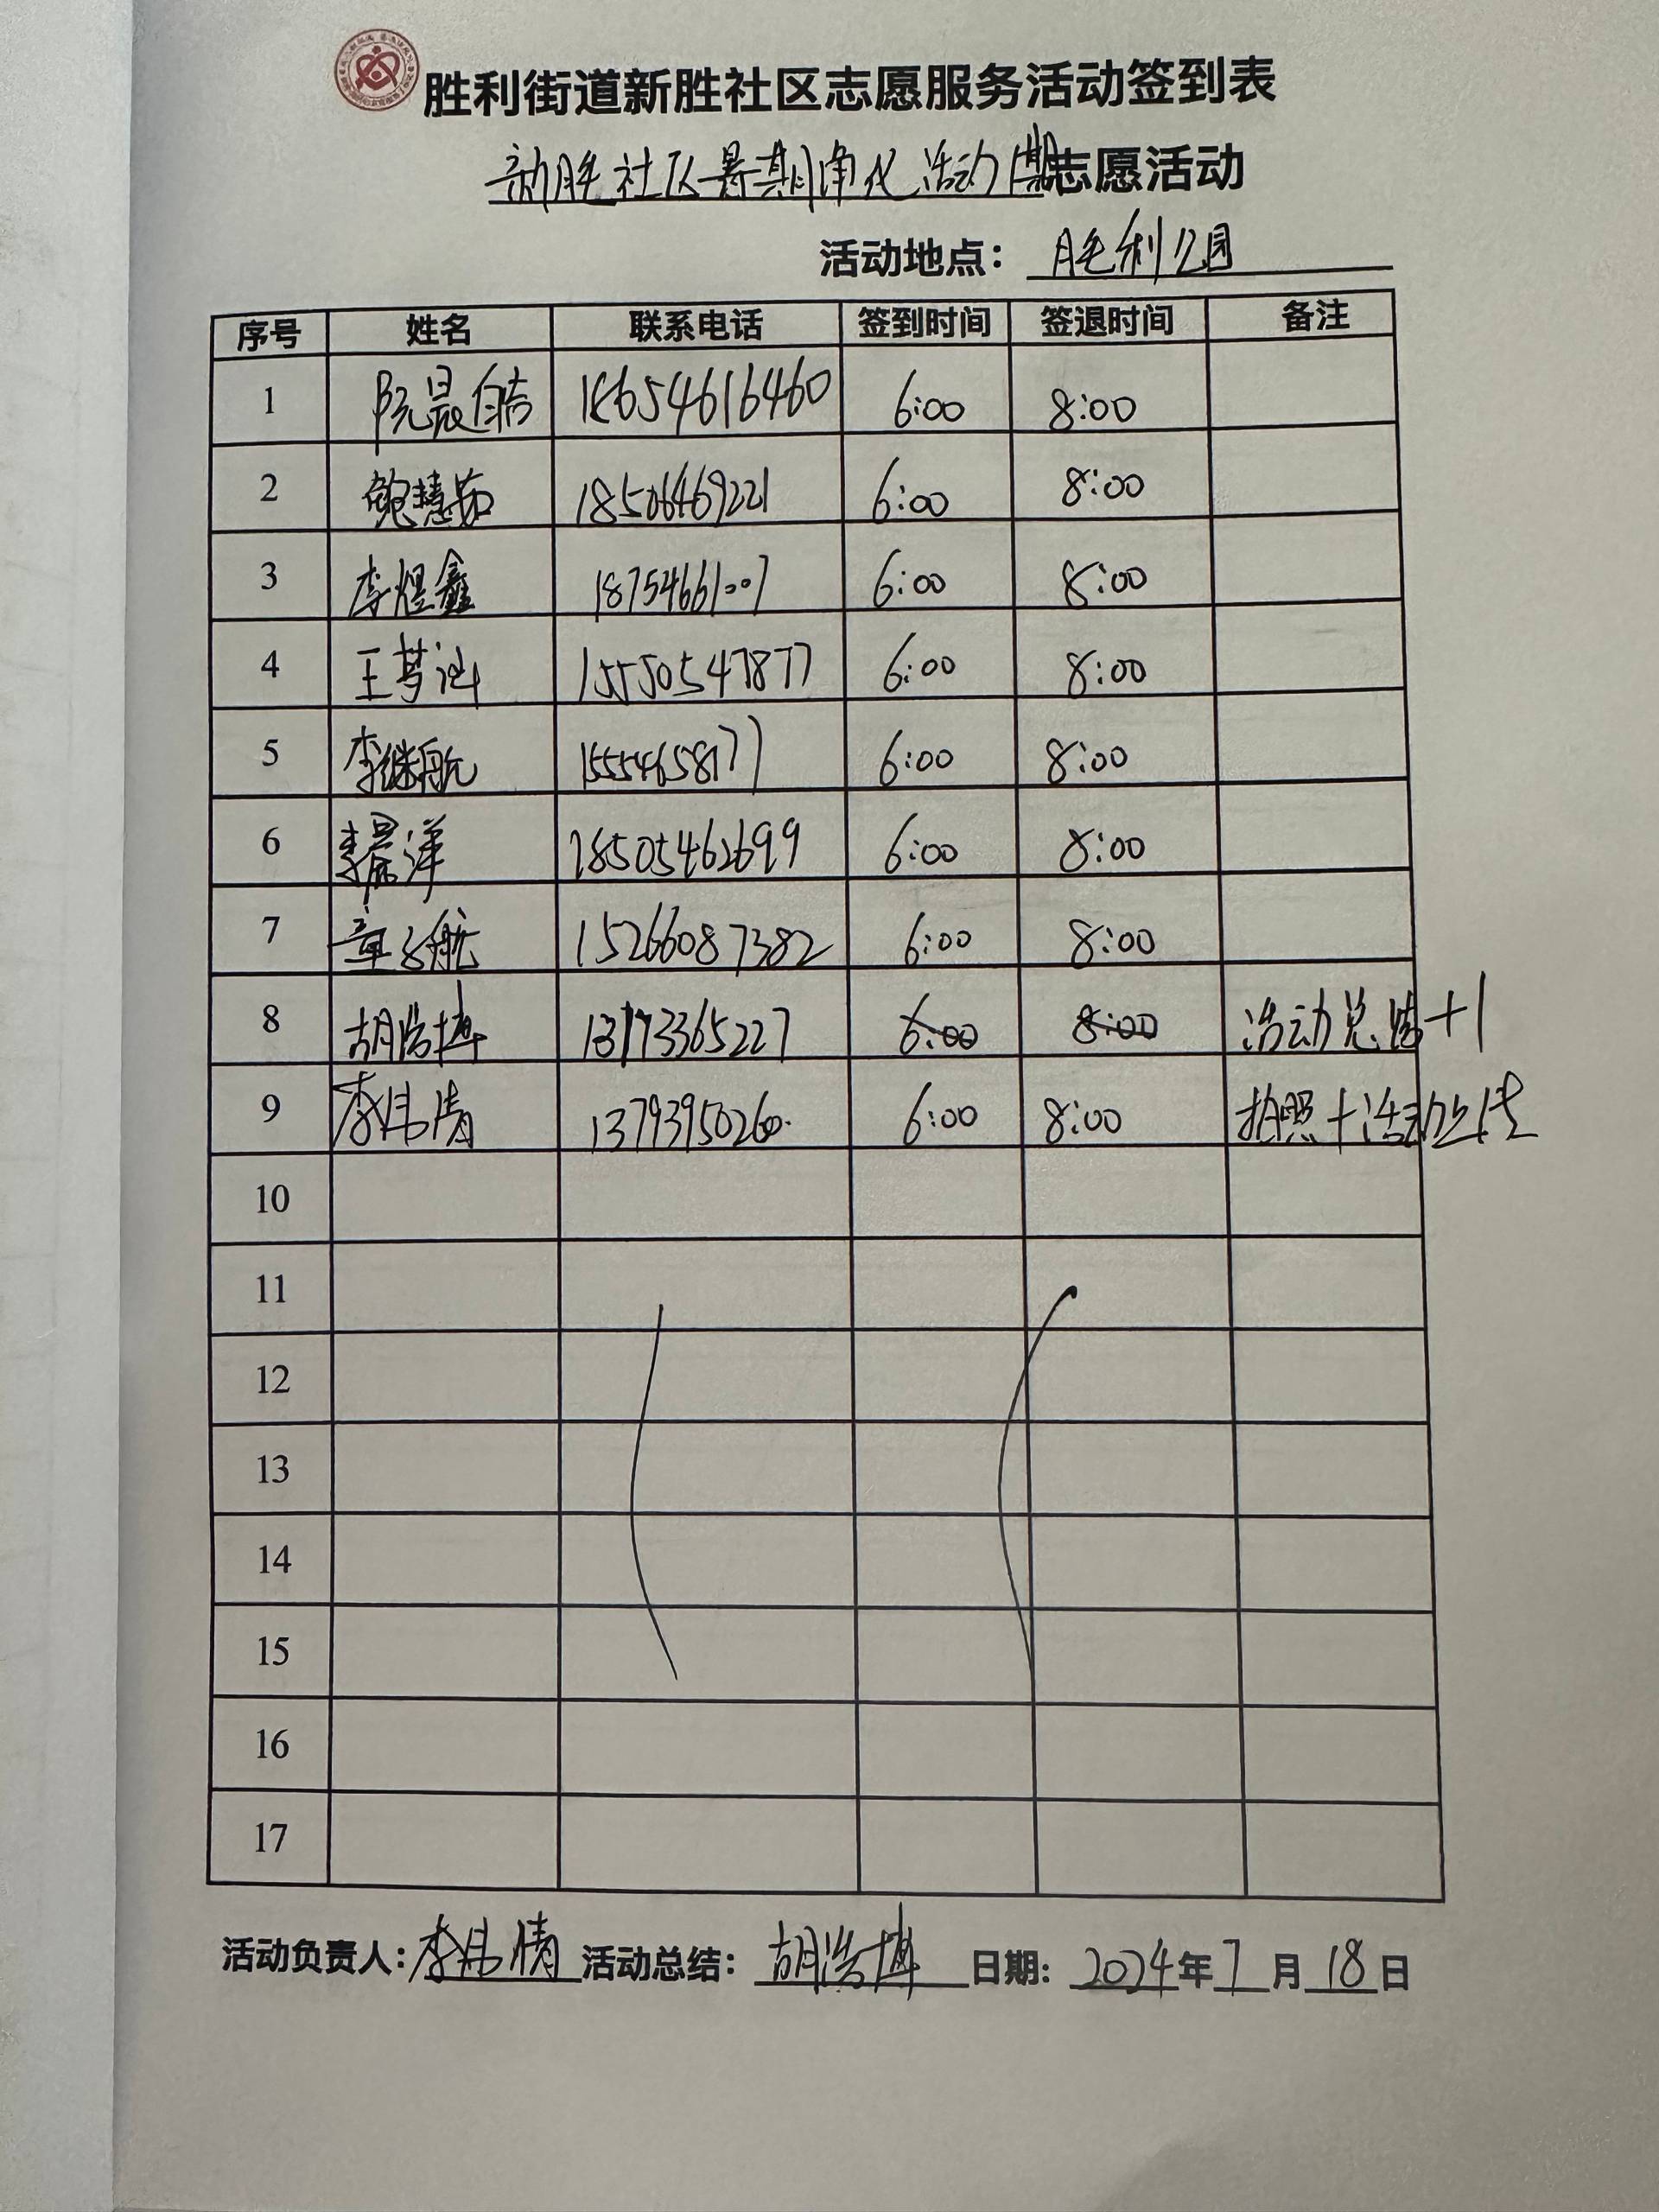 胜利街道新胜社区志愿服务活动签到表
新胜社区暑期净化活动1期志愿活动
活动地点：胜利公园
序号 姓名 联系电话 签到时间 签退时间 备注
1 阮晨皓 18654616460 6:00 8:00
2 鲍慧茹 18506469221 6:00 8:00
3 李煜鑫 18754661007 6:00 8:00
4 王梦汕 15550547877 6:00 8:00
5 李继航 15554658177 6:00 8:00
6 李晨洋 18505462699 6:00 8:00
7 章子航 15266087382 6:00 8:00
8 胡浩博 13173365227 6:00 8:00 活动总结+1
9 李炜倩 13793950260 6:00 8:00 拍照+活动上传
10
11
12
13
14
15
16
17
活动负责人：李炜倩 活动总结：胡浩博 日期：2024年7月18日